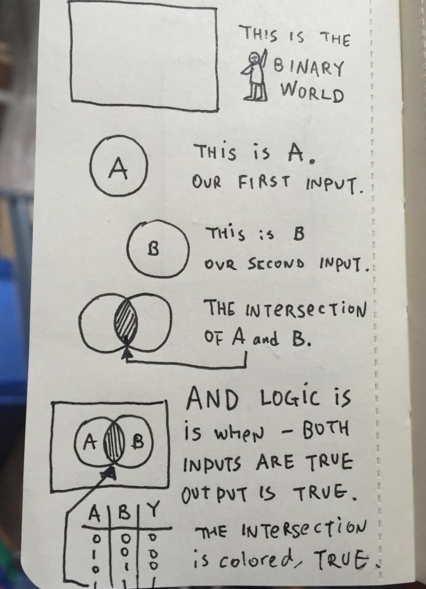 THIS IS THE
BINARY
WORLD
A
THIS IS A.
OUR FIRST INPUT.
B
THIS IS B
OUR SECOND INPUT.
THE INTERSECTION
OF A and B.
AND LOGIC IS
IS WHEN - BOTH
INPUTS ARE TRUE
OUTPUT IS TRUE.
A B
A B Y
0 0 0
1 0 0
0 1 0
1 1 1
THE INTERSECTION
IS COLORED, TRUE.